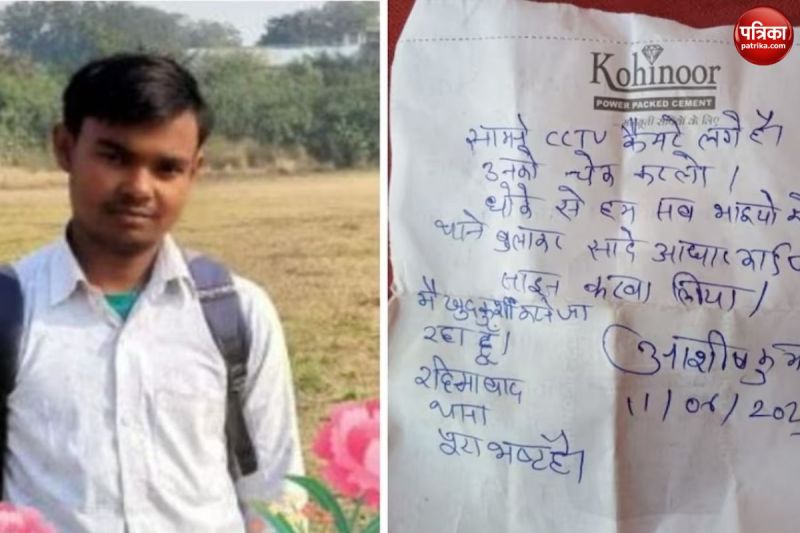 पत्रिका
patrika.com
Kohinoor
POWER PACKED CEMENT
सामने CCTV कैमरे लगे है।
उनको चेक करलो।
धोके से हम सब भाइयो
थाने बुलाकर सादे आधार कार्ड
साइन करवा लिया।
मै खुदकुशी करने जा
रहा हूँ।
आशीष कु
रहिमाबाद
11/06/202
थाना
पूरा भष्ट है।